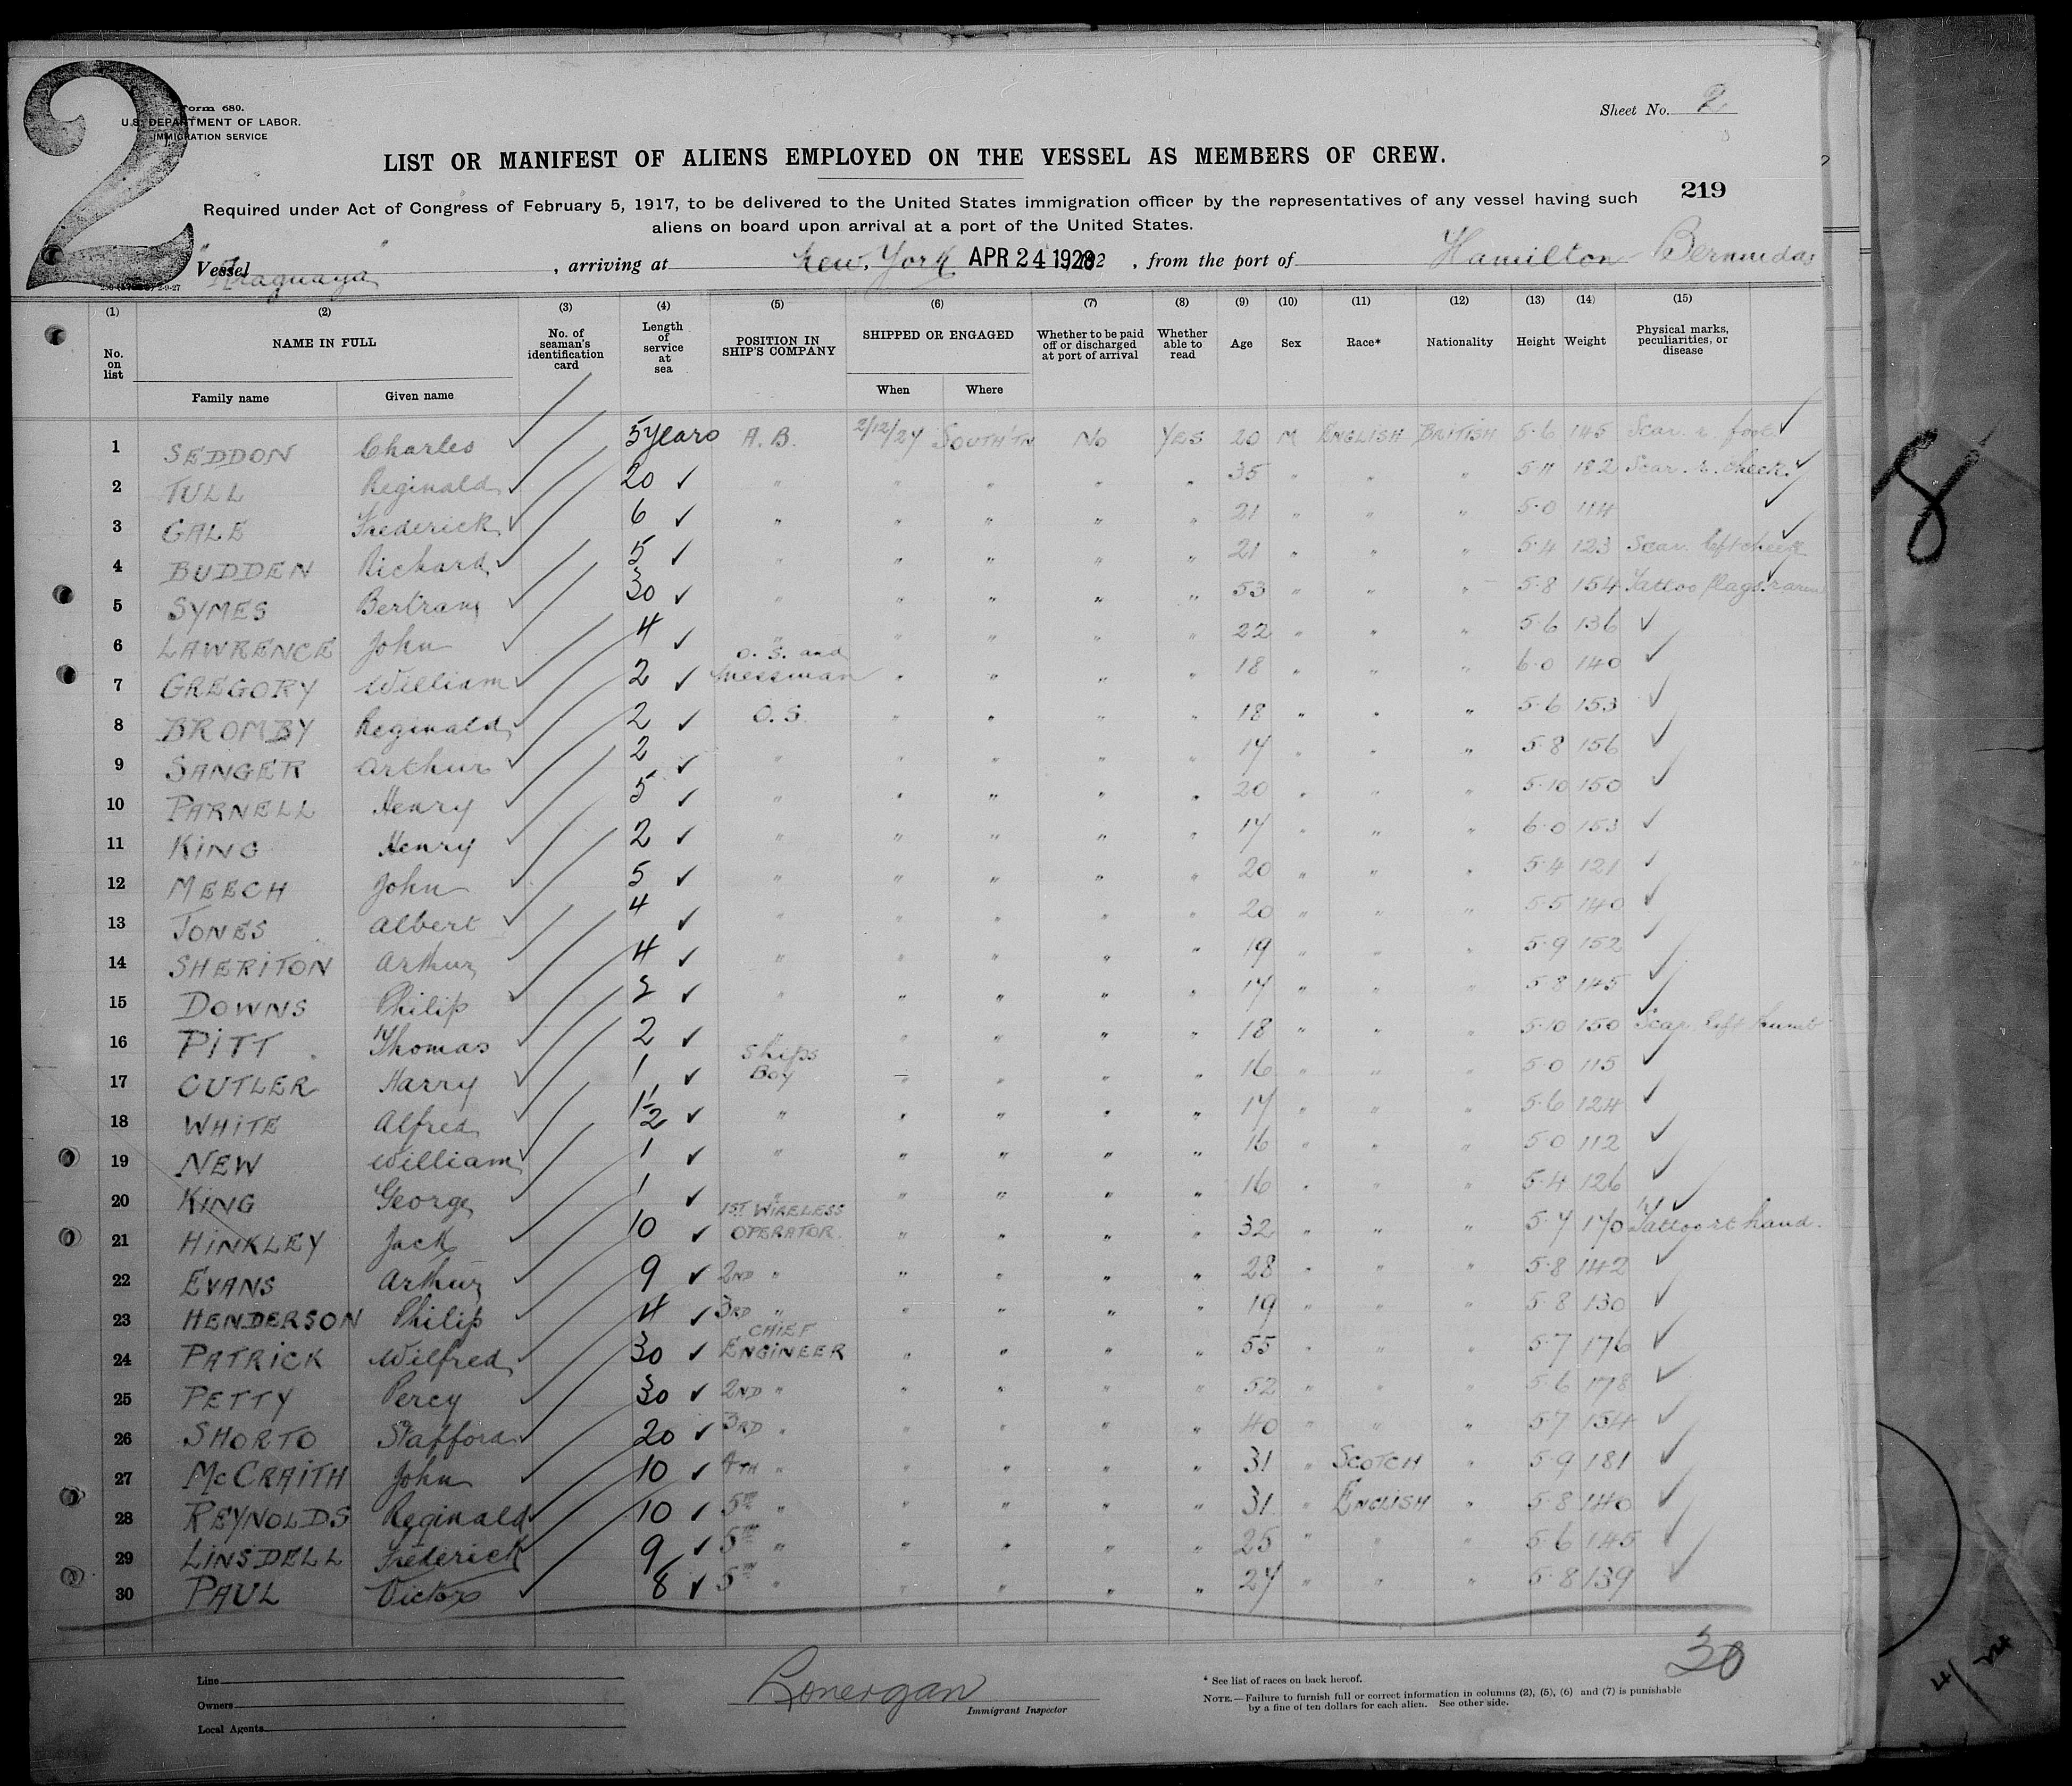 2
Form 680.
U.S. DEPARTMENT OF LABOR.
IMMIGRATION SERVICE
Sheet No. 2
LIST OR MANIFEST OF ALIENS EMPLOYED ON THE VESSEL AS MEMBERS OF CREW.
219
Required under Act of Congress of February 5, 1917, to be delivered to the United States immigration officer by the representatives of any vessel having such
aliens on board upon arrival at a port of the United States.
Vessel "Araguaya", arriving at New York APR 24 1928, from the port of Hamilton Bermuda
(1) (2) (3) (4) (5) (6) (7) (8) (9) (10) (11) (12) (13) (14) (15)
No. on list NAME IN FULL No. of seaman's identification card Length of service at sea POSITION IN SHIP'S COMPANY SHIPPED OR ENGAGED Whether to be paid off or discharged at port of arrival Whether able to read Age Sex Race* Nationality Height Weight Physical marks, peculiarities, or disease
Family name Given name When Where
1 SEDDON Charles 5 years A.B. 2/12/27 SOUTH'TN No YES 20 M ENGLISH BRITISH 5-6 145 Scar r. foot
2 TULL Reginald 20 " " " " " 35 " " " 5-11 182 Scar. r. cheek
3 GALE Frederick 6 " " " " " 21 " " " 5-0 114
4 BUDDEN Richard 5 " " " " " 21 " " " 5-4 123 Scar left cheek
5 SYMES Bertram 30 " " " " " 53 " " " 5-8 154 Tattoo flags r arm
6 LAWRENCE John 4 " " " " " 22 " " " 5-6 136
7 GREGORY William 2 O.S. and Messman " " " " 18 " " " 6-0 140
8 BROMBY Reginald 2 O.S. " " " " 18 " " " 5-6 153
9 SANGER Arthur 2 " " " " " 17 " " " 5-8 156
10 PARNELL Henry 5 " " " " " 20 " " " 5-10 150
11 KING Henry 2 " " " " " 17 " " " 6-0 153
12 MEECH John 5 " " " " " 20 " " " 5-4 121
13 JONES Albert 4 " " " " " 20 " " " 5-5 140
14 SHERITON Arthur 4 " " " " " 19 " " " 5-9 152
15 DOWNS Philip 2 " " " " " 17 " " " 5-8 145
16 PITT Thomas 2 " " " " " 18 " " " 5-10 150 Scar left thumb
17 CUTLER Harry 1 Ships Boy " " " " 16 " " " 5-0 115
18 WHITE Alfred 1½ " " " " " 17 " " " 5-6 124
19 NEW William 1 " " " " " 16 " " " 5-0 112
20 KING George 1 " " " " " 16 " " " 5-4 126
21 HINKLEY Jack 10 1ST WIRELESS OPERATOR " " " " 32 " " " 5-7 170 Tattoo rt hand.
22 EVANS Arthur 9 2ND " " " " " 28 " " " 5-8 142
23 HENDERSON Philip 4 3RD " " " " " 19 " " " 5-8 130
24 PATRICK Wilfred 30 CHIEF ENGINEER " " " " 55 " " " 5-7 176
25 PETTY Percy 30 2ND " " " " " 52 " " " 5-6 178
26 SHORTO Stafford 20 3RD " " " " " 40 " " " 5-7 154
27 McCRAITH John 10 4TH " " " " " 31 " SCOTCH " 5-9 181
28 REYNOLDS Reginald 10 5TH " " " " " 31 " ENGLISH " 5-8 140
29 LINSDELL Frederick 9 5TH " " " " " 25 " " " 5-6 145
30 PAUL Victor 8 5TH " " " " " 27 " " " 5-8 139
30
Line
Owners
Local Agents
Lonergan
Immigrant Inspector
* See list of races on back hereof.
NOTE.—Failure to furnish full or correct information in columns (2), (5), (6) and (7) is punishable
by a fine of ten dollars for each alien. See other side.